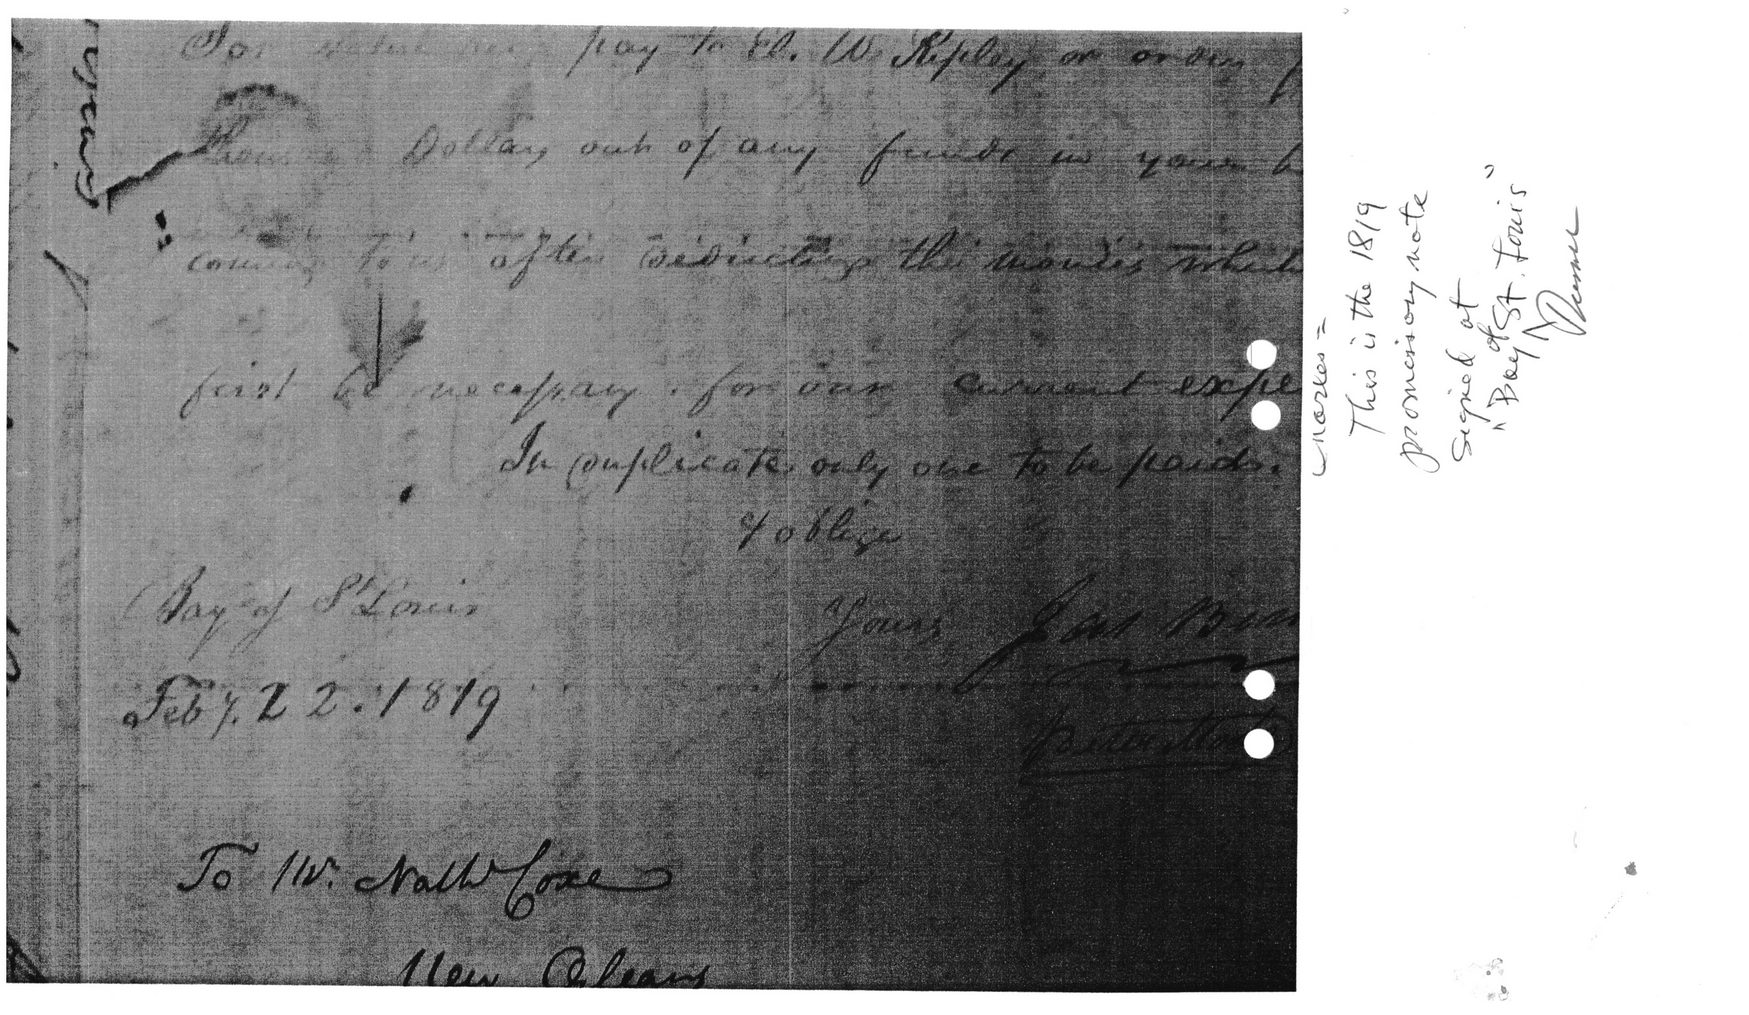 For value rec'd pay to E. W. Ripley or order
thousand Dollars out of any funds in your
coming to us after deducting the monies which
first be necessary for our current expe
In duplicate only one to be paid.
& oblige
Bay of St Louis
Yours
Feby. 22. 1819
To Mr. Nathl Coxe
New Orleans
This is the 1819
promissory note
signed at
"Bay of St. Louis"